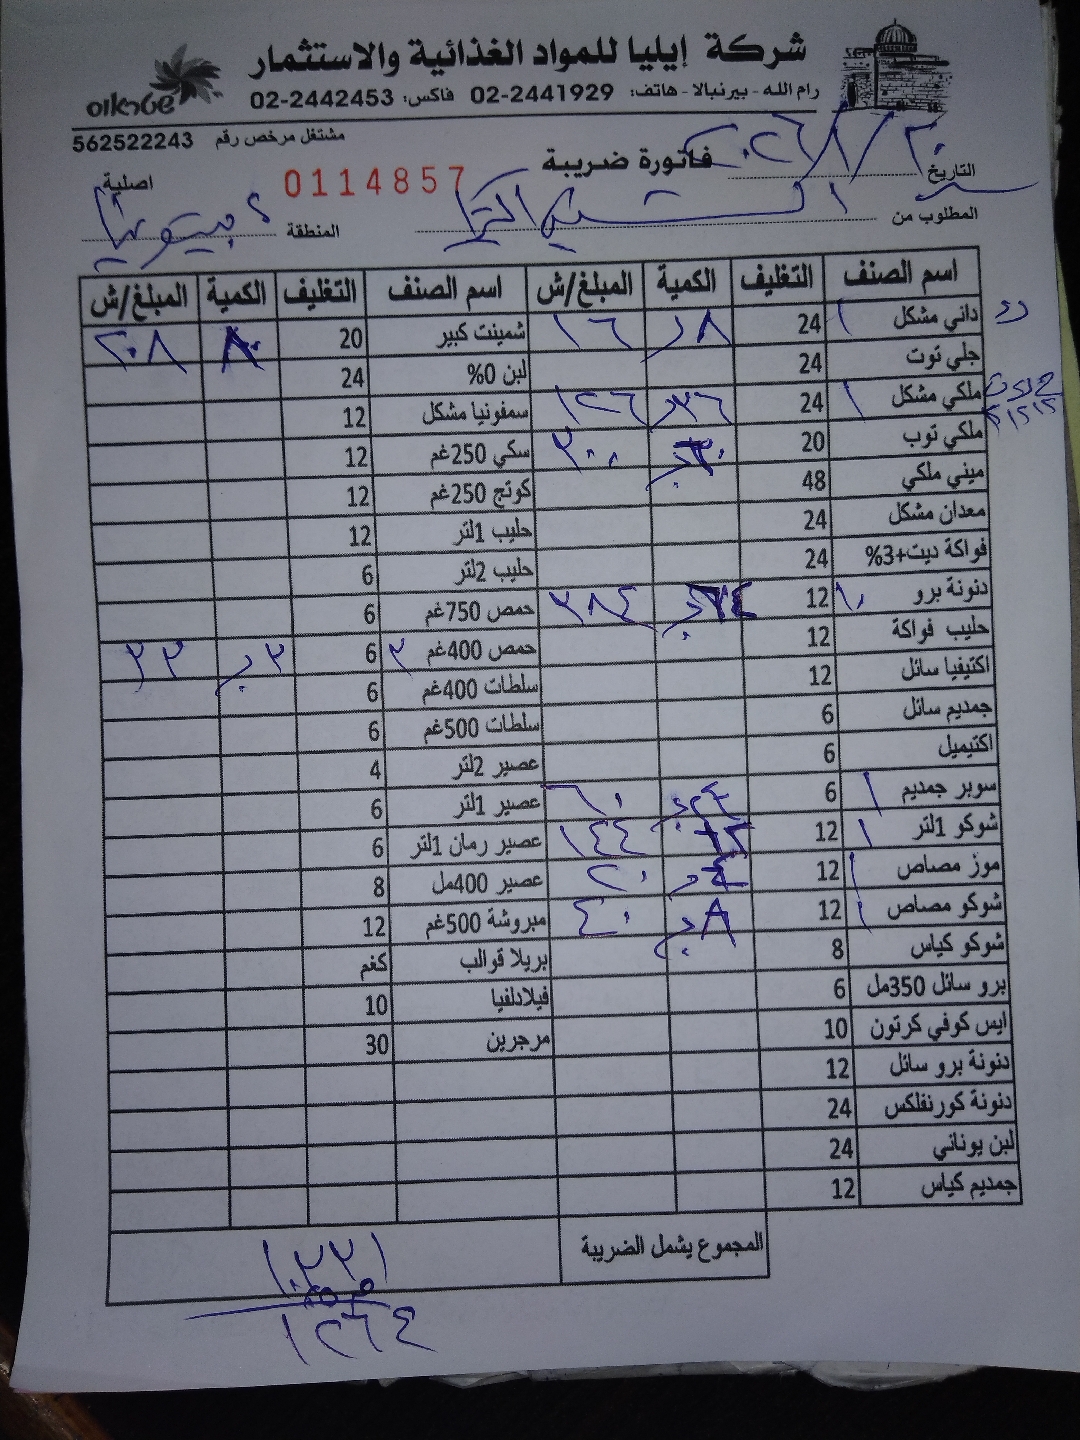 شركة إيليا للمواد الغذائية والاستثمار
رام الله - بيرنبالا - هاتف: 02-2441929 فاكس: 02-2442453
שטראוס
مشتغل مرخص رقم 562522243
فاتورة ضريبة
التاريخ
اصلية 0114857
المطلوب من
المنطقة بيتونيا
اسم الصنف التغليف الكمية المبلغ/ش اسم الصنف التغليف الكمية المبلغ/ش
داني مشكل ١ 24 ٨ ١٦ شمينت كبير 20 ٨٠ ٢٠٨
جلي توت 24 لبن 0% 24
ملكي مشكل ١ 24 ٣٦ ١٢٦ سمفونيا مشكل 12
ملكي توب 20 ٢٠٠ سكي 250غم 12
ميني ملكي 48 كوتج 250غم 12
معدان مشكل 24 حليب 1لتر 12
فواكة ديت+3% 24 حليب 2لتر 6
دنونة برو ١٠ 12 ٣٨٤ حمص 750غم 6
حليب فواكة 12 حمص 400غم ٢ 6 ٣٣
اكتيفيا سائل 12 سلطات 400غم 6
جمديم سائل 6 سلطات 500غم 6
اكتيميل 6 عصير 2لتر 4
سوبر جمديم ١ 6 ٦٠ عصير 1لتر 6
شوكو 1لتر ١ 12 ١٤٤ عصير رمان 1لتر 6
موز مصاص ١ 12 ٢٠ عصير 400مل 8
شوكو مصاص ١ 12 ٨ ٤٠ مبروشة 500غم 12
شوكو كياس 8 بريلا قوالب كغم
برو سائل 350مل 6 فيلادلفيا 10
ايس كوفي كرتون 10 مرجرين 30
دنونة برو سائل 12
دنونة كورنفلكس 24
لبن يوناني 24
جمديم كياس 12
المجموع يشمل الضريبة
١٢٦٤